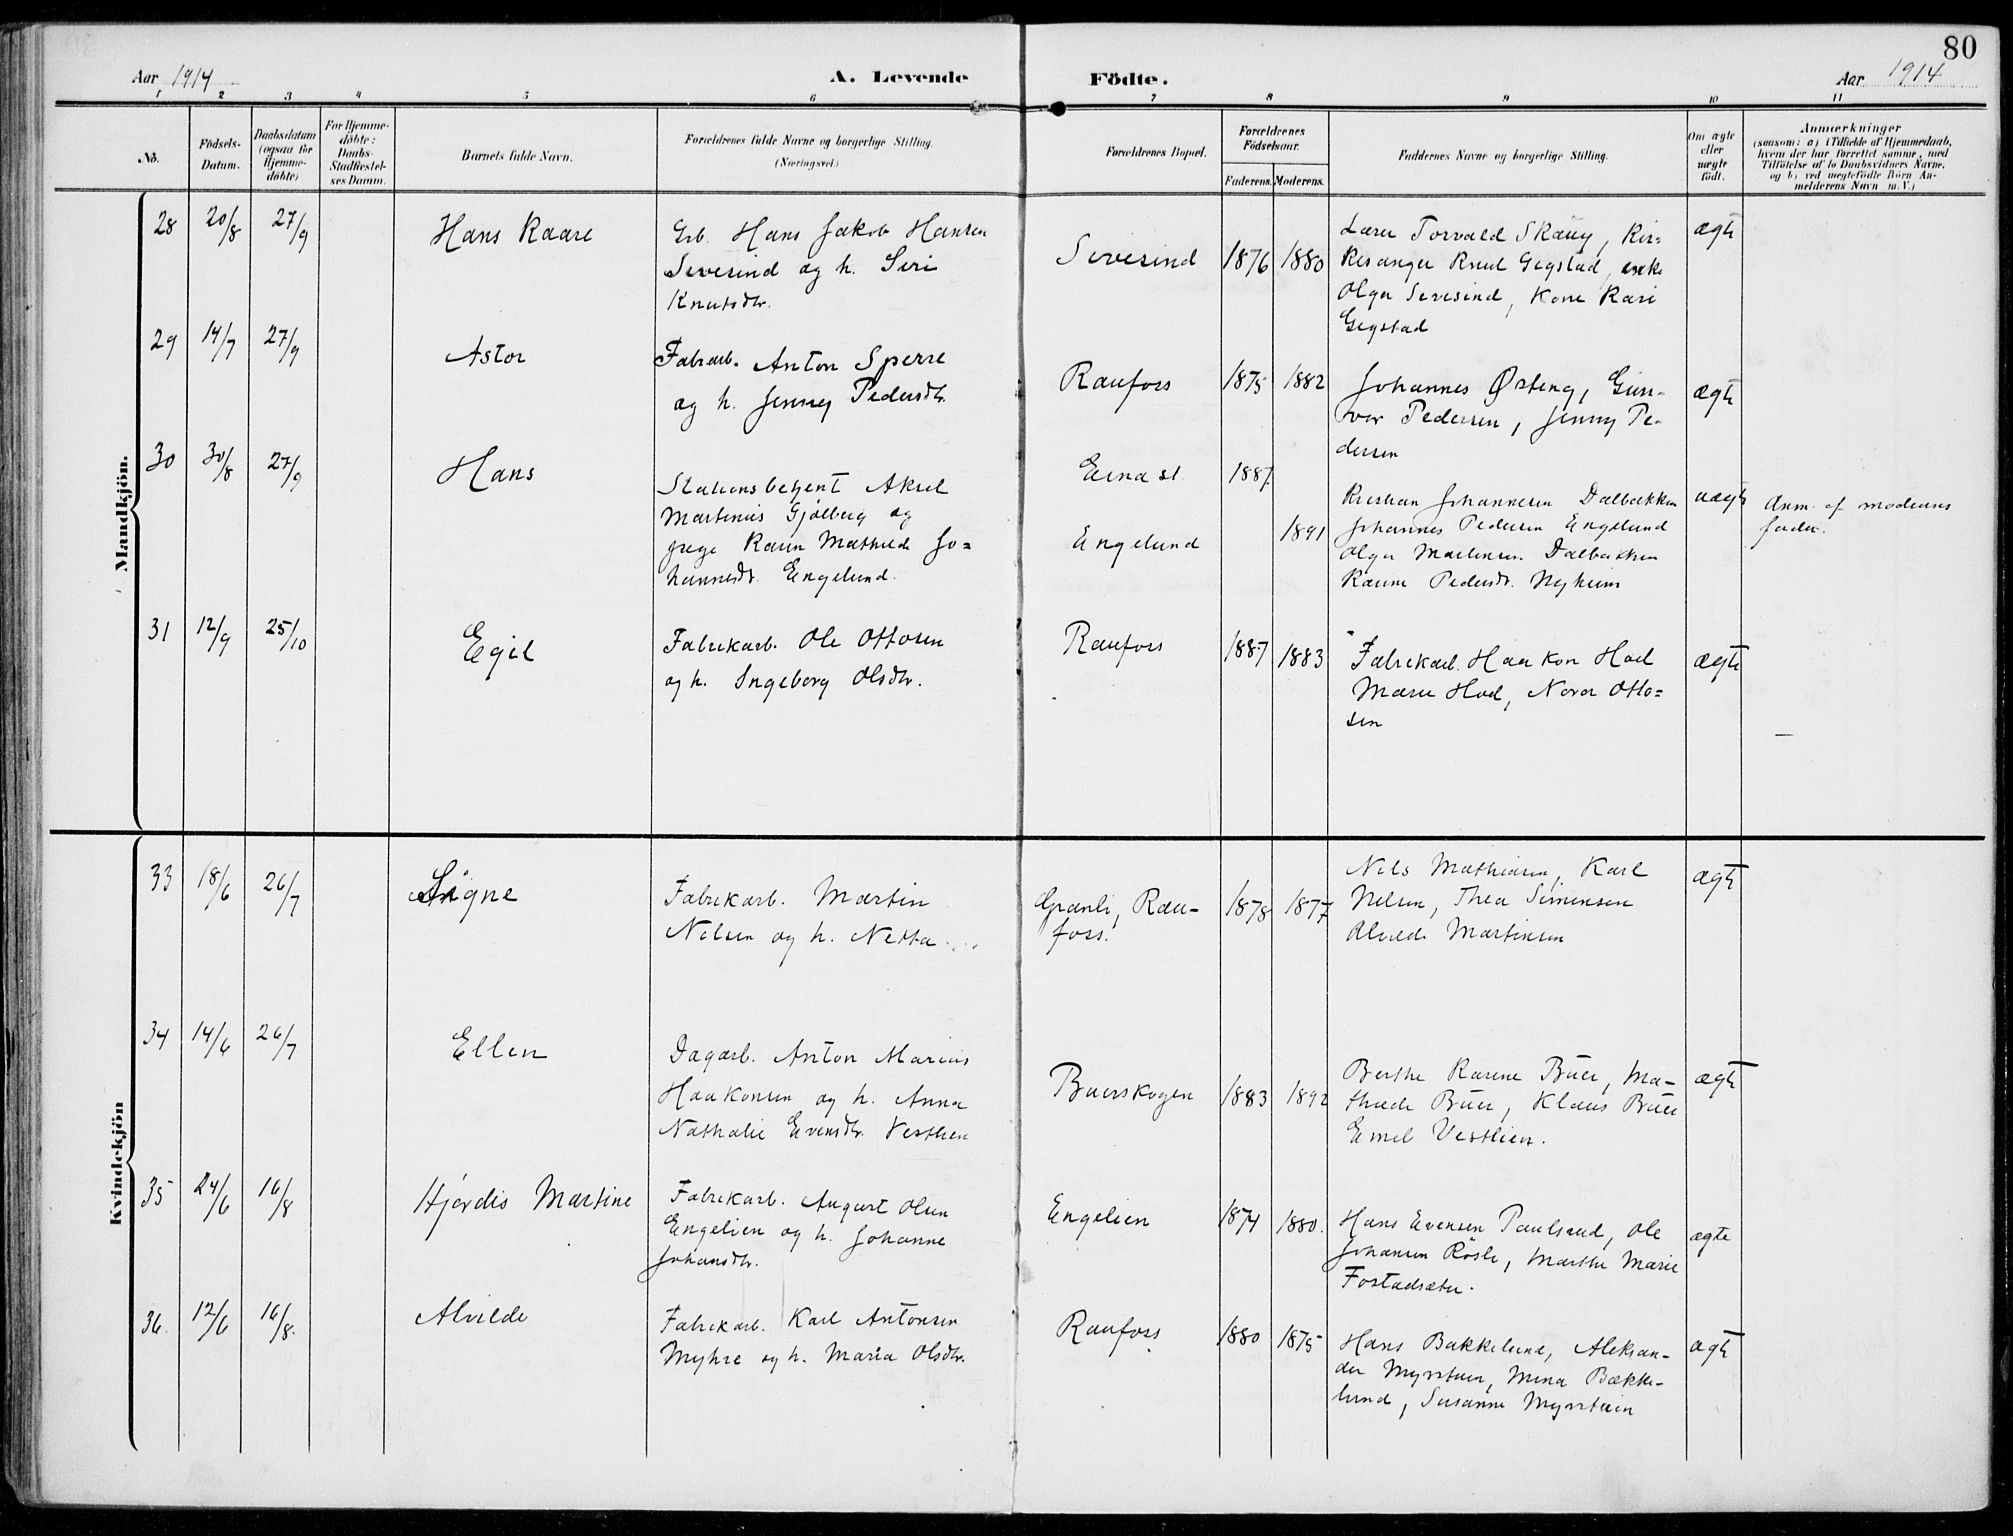 80
Aar 1914
A. Levende Födte.
Aar 1914
1 2 3 4 5 6 7 8 9 10 11
No.
Födsels-
Datum.
Daabsdatum
(ogsaa for
Hjemme-
döbte)
For Hjemme-
döbte:
Daabs-
Stadfæstel-
ses Datum.
Barnets fulde Navn.
Forældrenes fulde Navne og borgerlige Stilling.
(Næringsvei.)
Forældrenes Bopæl.
Forældrenes
Födselsaar.
Faderens. Moderens.
Faddernes Navne og borgerlige Stilling.
Om ægte
eller
uægte
født.
Anmærkninger
(saasom: a) i Tilfælde af Hjemmedaab,
hvem der har forrettet samme, med
Tilföielse af to Daabsvidners Navne,
og b) ved uægtefödte Börn An-
melderens Navn m. V.)
Mandkjön.
28 20/8 27/9
Hans Kaare
Grb. Hans Jakob Hansen
Sivesind og h. Siri
Knutsdtr.
Sivesind
1876 1880
Lærer Torvald Skaug, Kir-
kesanger Knud Gegstad, enke
Olga Sivesind, Kone Kari
Gegstad
ægte
29 14/7 27/9
Astor
Fabrarb. Anton Sperre
og h. Jenny Pedersdtr.
Raufoss
1875 1882
Johannes Østeng, Gun-
vor Pedersen, Jenny Pe-
dersen
ægte
30 30/8 27/9
Hans
Stationsbetjent Aksel
Martinius Gjølberg og
pige Karen Mathilde Jo=
hannesdtr. Engelund.
Eina st.
Engelund
1887
1891
Kristian Johannesen Dalbakken
Johannes Pedersen Engelund
Olga Martinsen Dalbakken
Karine Pedersdtr. Nyheim
uægte
Anm. af moderens
fader.
31 12/9 25/10
Egil
Fabrikarb. Ole Ottosen
og h. Ingeborg Olsdtr.
Raufoss
1887 1883
Fabrikarb. Haakon Hoel
Marie Hoel, Nora Otto=
sen
ægte
Kvindekjön
33 18/6 26/7
Signe
Fabrikarb. Martin
Nilsen og h. Netta
Granli, Rau-
foss.
1878 1877
Nils Mathiasen, Karl
Nilsen, Thea Simensen
Alvilde Martinsen
ægte
34 14/6 26/7
Ellen
Dagarb. Anton Marius
Haakonsen og h. Anna
Nathalie Evensdtr. Vestlien
Buerskogen
1883 1892
Berthe Karine Buer, Ma-
thilde Buer, Klaus Buer
Emil Vestlien.
ægte
35 24/6 16/8
Hjørdis Martine
Fabrikarb. August Olsen
Engelien og h. Johanne
Johansdtr.
Engelien
1874 1880.
Hans Evensen Paulsrud, Ole
Johansen Røsli, Marthe Marie
Fostadsæter.
ægte
36. 12/6 16/8.
Alvilde
Fabrikarb. Karl Antonsen
Myhre og h. Maria Olsdtr.
Raufoss
1880 1875
Hans Bakkelund, Aleksan-
der Myrstuen, Mina Bakke-
lund, Susanne Myrstuen
ægte